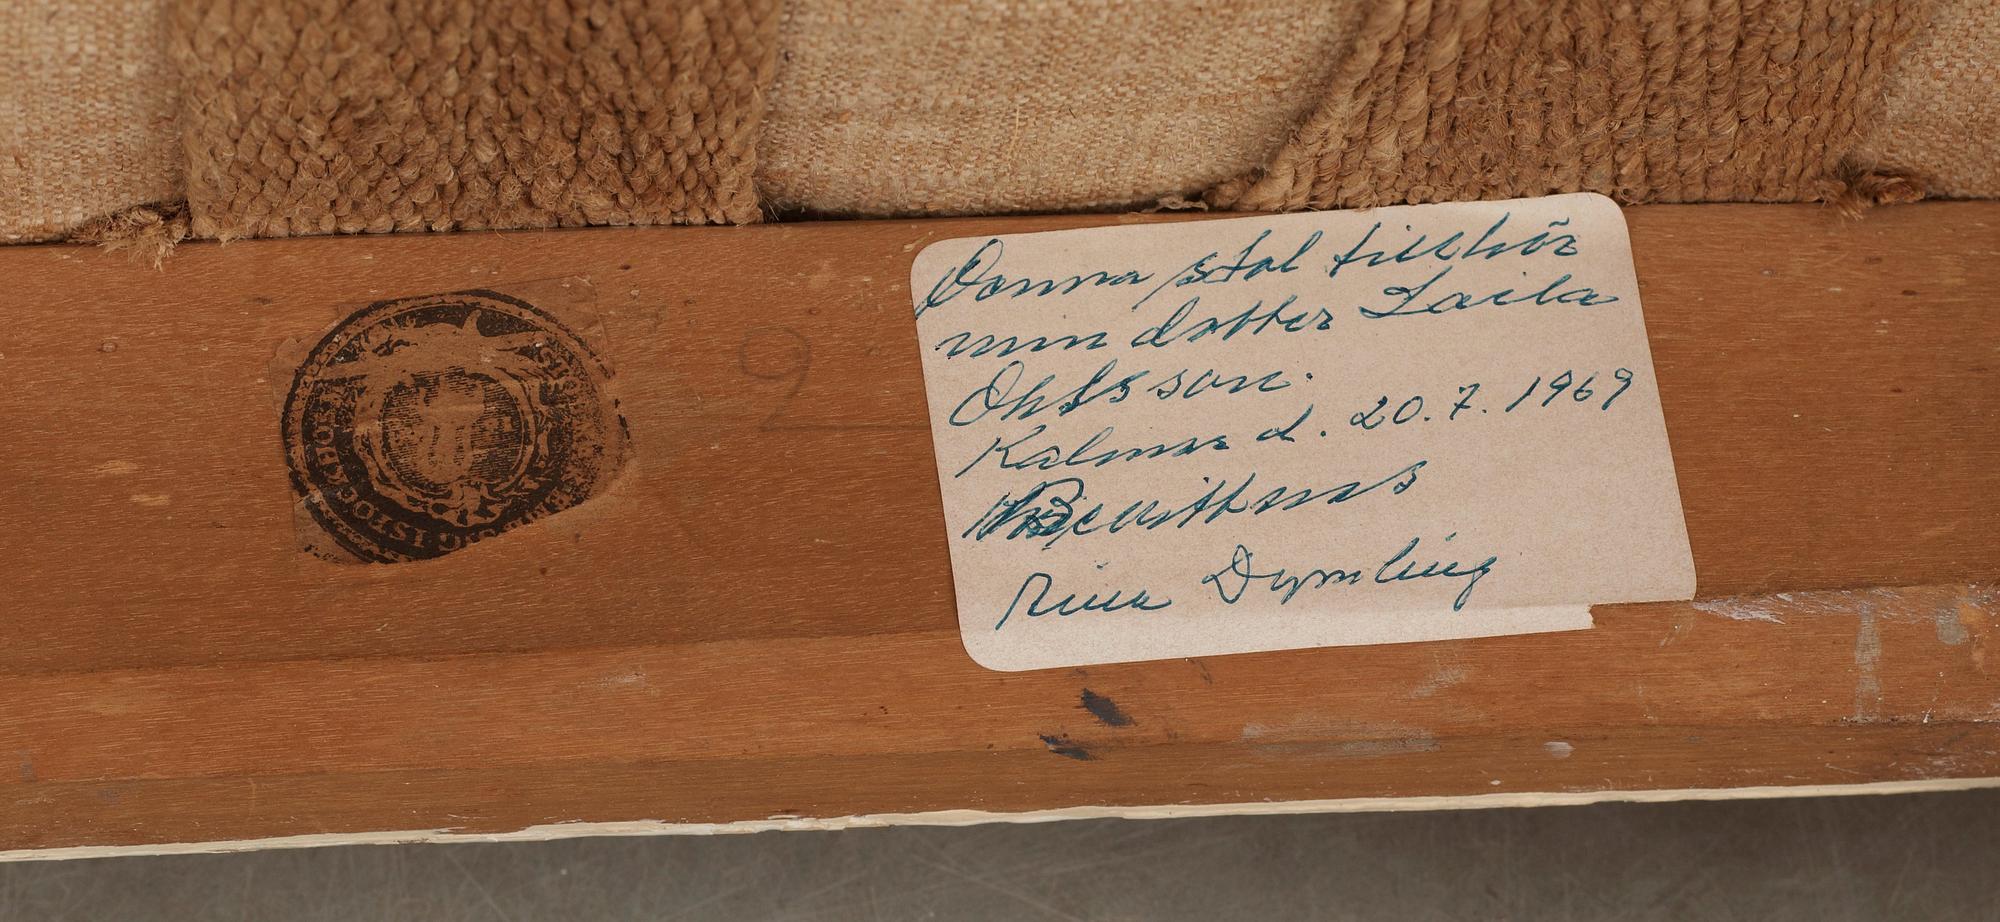 2
Denna stol tillhör
min dotter Laila
Ohlsson.
Kalmar d. 20.7.1969
Bevittnas
Rina Dymling